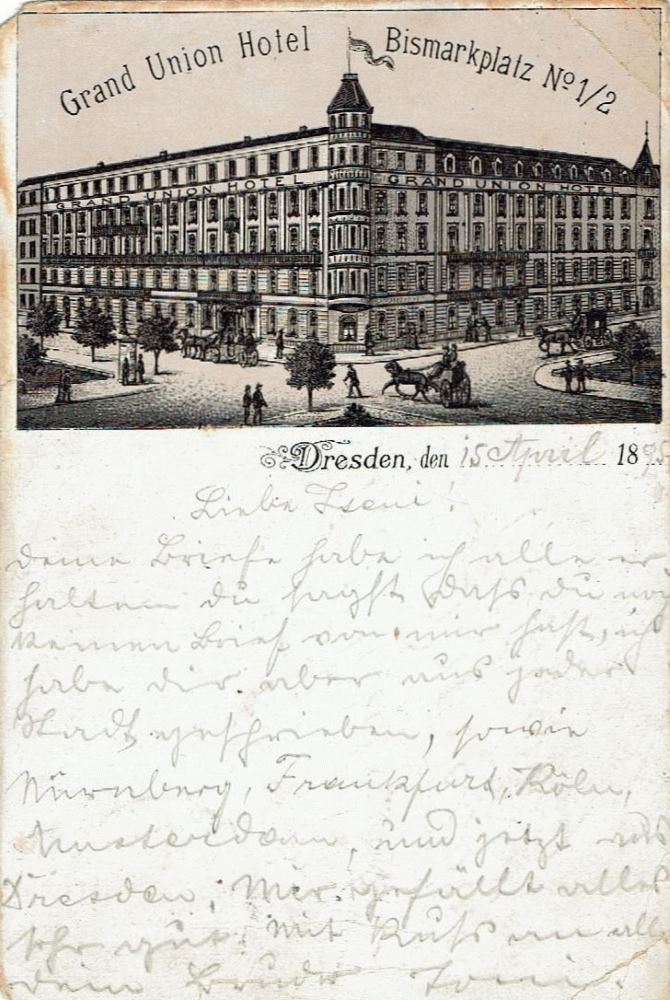 Grand Union Hotel Bismarkplatz No 1/2
GRAND UNION HOTEL GRAND UNION HOTEL
Dresden, den 15 April 1895
Liebe
deine Briefe habe ich alle er-
halten du sagst dass du noch
keinen Brief von mir hast, ich
habe dir aber aus jeder
Stadt geschrieben, sowie
Nürnberg, Frankfurt, Köln,
Amsterdam, und jetzt aus
Dresden, Mir gefällt alles
sehr gut. Mit Kuss an alle
dein Bruder Toni.